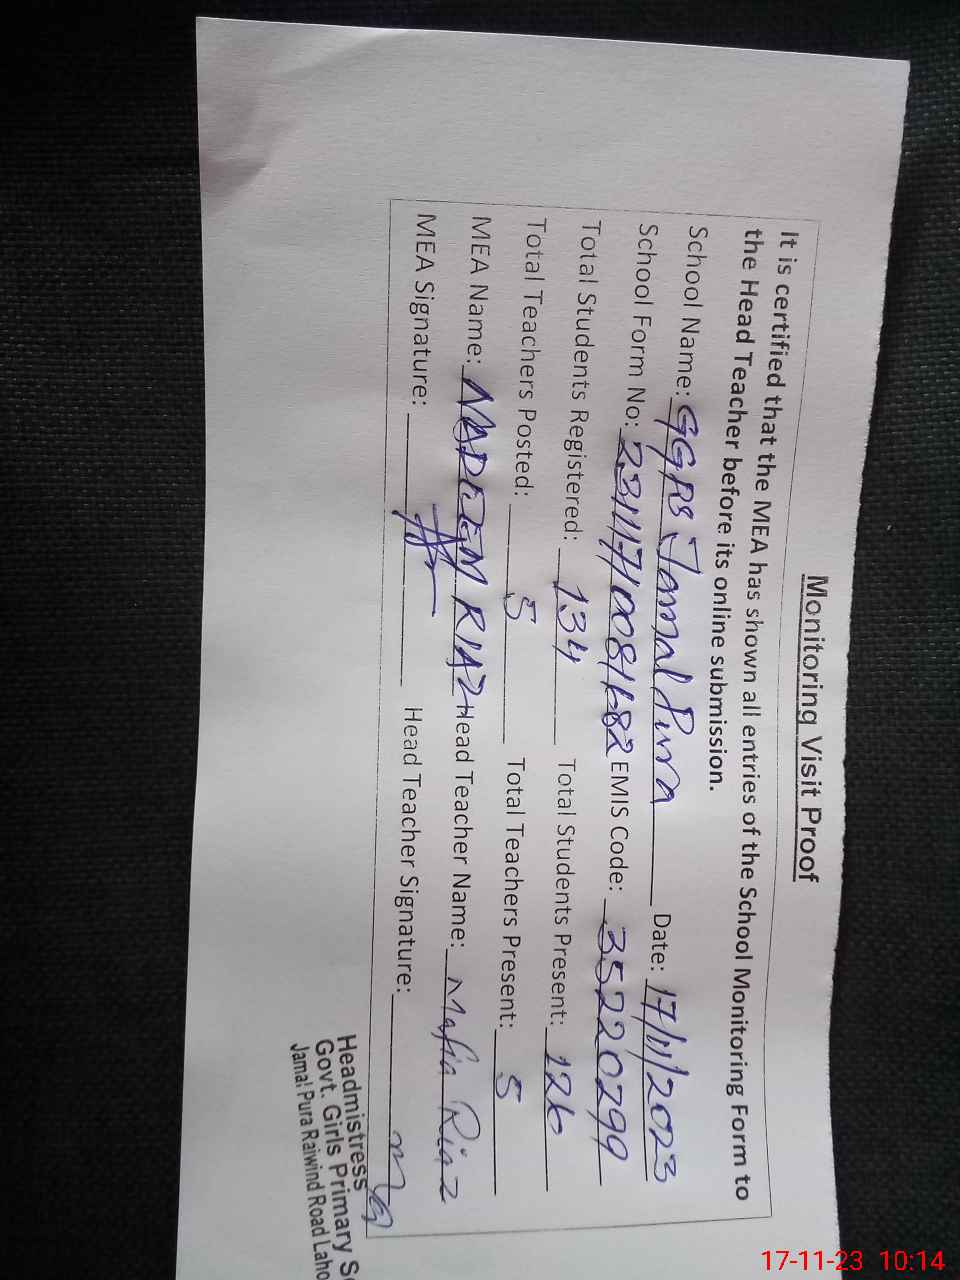 Monitoring Visit Proof
It is certified that the MEA has shown all entries of the School Monitoring Form to
the Head Teacher before its online submission.
School Name: GGPS Jamal Pura Date: 17/11/2023
School Form No: EMIS Code: 35220299
Total Students Registered: 134 Total Students Present: 126
Total Teachers Posted: 5 Total Teachers Present: 5
MEA Name: NADEEM RIAZ Head Teacher Name: Riaz
MEA Signature: Head Teacher Signature:
Headmistress
Govt. Girls Primary S
Jamal Pura Raiwind Road Laho
17-11-23 10:14